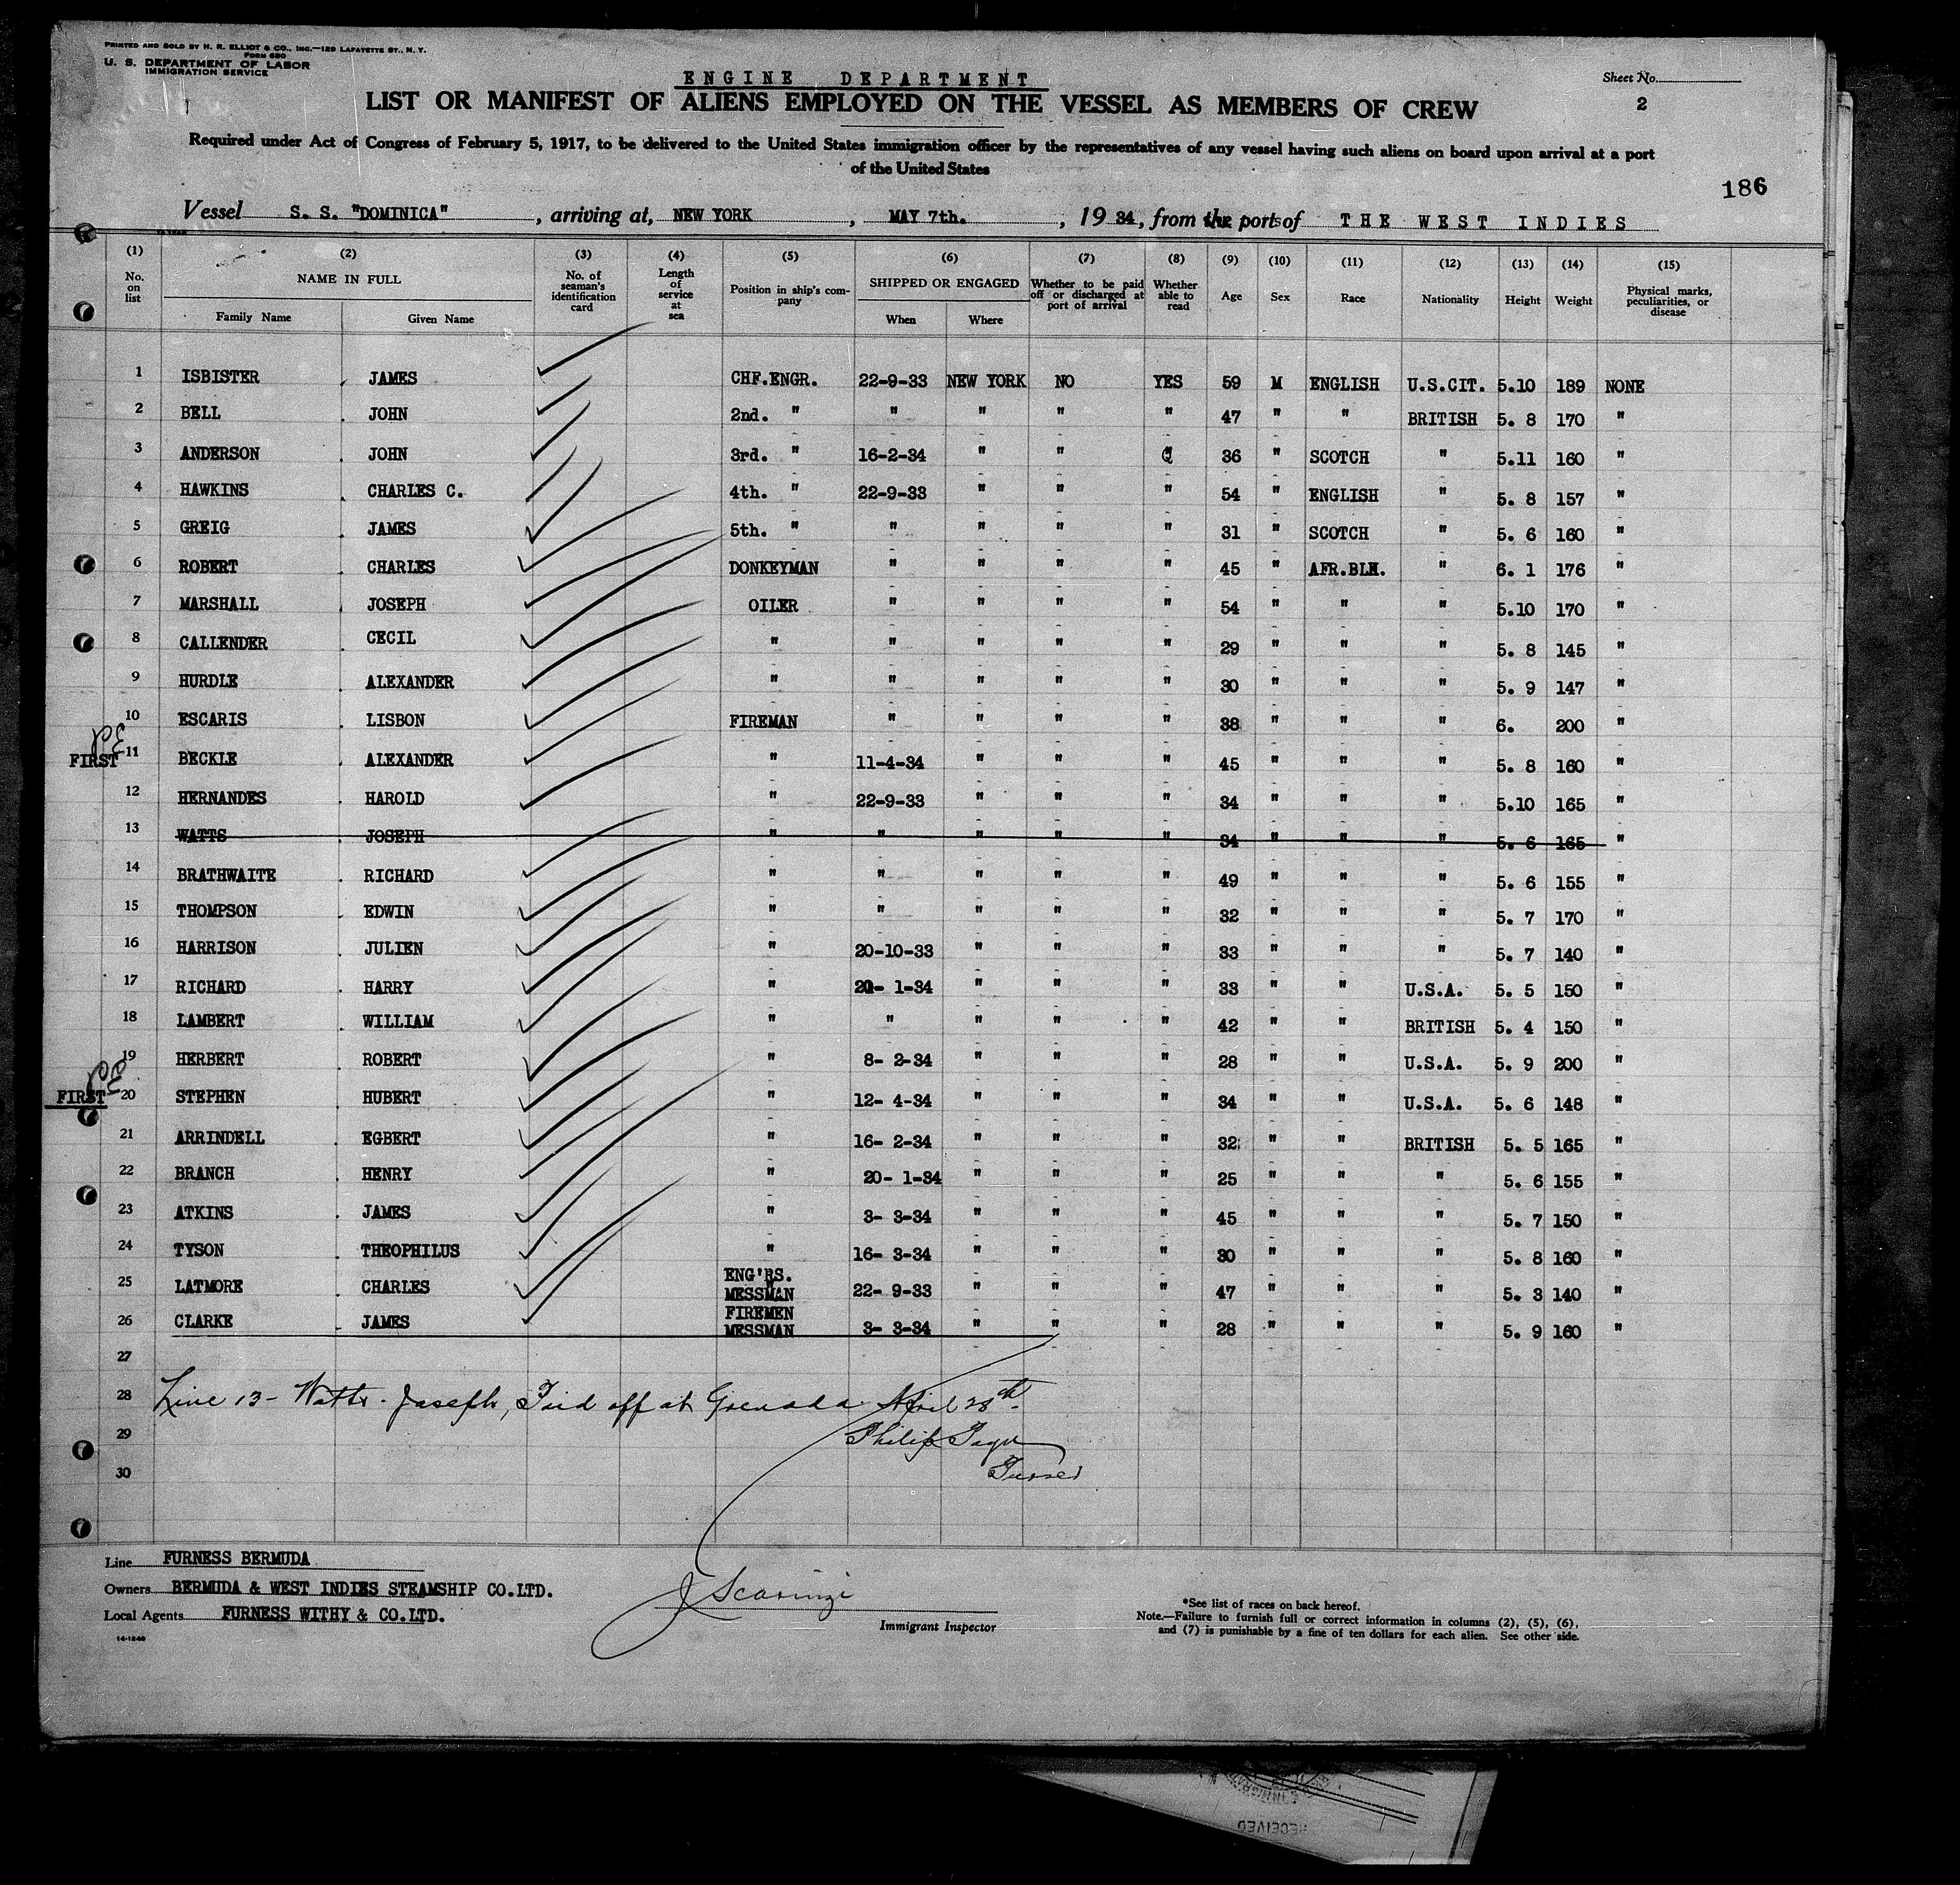 PRINTED AND SOLD BY H. R. ELLIOT & CO., INC.—129 LAFAYETTE ST., N. Y.
FORM 680
U. S. DEPARTMENT OF LABOR
IMMIGRATION SERVICE
ENGINE DEPARTMENT
Sheet No.
2
LIST OR MANIFEST OF ALIENS EMPLOYED ON THE VESSEL AS MEMBERS OF CREW
Required under Act of Congress of February 5, 1917, to be delivered to the United States immigration officer by the representatives of any vessel having such aliens on board upon arrival at a port
of the United States
186
Vessel S. S. "DOMINICA", arriving at, NEW YORK, MAY 7th., 1934, from the ports of THE WEST INDIES
(1) (2) (3) (4) (5) (6) (7) (8) (9) (10) (11) (12) (13) (14) (15)
No. on list NAME IN FULL Family Name Given Name No. of seaman's identification card Length of service at sea Position in ship's company SHIPPED OR ENGAGED When Where Whether to be paid off or discharged at port of arrival Whether able to read Age Sex Race Nationality Height Weight Physical marks, peculiarities, or disease
1 ISBISTER . JAMES CHF.ENGR. 22-9-33 NEW YORK NO YES 59 M ENGLISH U.S.CIT. 5.10 189 NONE
2 BELL . JOHN 2nd. " " " " " 47 " " BRITISH 5. 8 170 "
3 ANDERSON . JOHN 3rd. " 16-2-34 " " " 36 " SCOTCH " 5.11 160 "
4 HAWKINS . CHARLES C. 4th. " 22-9-33 " " " 54 " ENGLISH " 5. 8 157 "
5 GREIG . JAMES 5th. " " " " " 31 " SCOTCH " 5. 6 160 "
6 ROBERT . CHARLES DONKEYMAN " " " " 45 " AFR.BLK. " 6. 1 176 "
7 MARSHALL . JOSEPH OILER " " " " 54 " " " 5.10 170 "
8 CALLENDER . CECIL " " " " " 29 " " " 5. 8 145 "
9 HURDLE . ALEXANDER " " " " " 30 " " " 5. 9 147 "
10 ESCARIS . LISBON FIREMAN " " " " 38 " " " 6. 200 "
FIRST 11 BECKLE . ALEXANDER " 11-4-34 " " " 45 " " " 5. 8 160 "
12 HERNANDES . HAROLD " 22-9-33 " " " 34 " " " 5.10 165 "
13 WATTS . JOSEPH " " " " " 34 " " " 5. 6 165 "
14 BRATHWAITE . RICHARD " " " " " 49 " " " 5. 6 155 "
15 THOMPSON . EDWIN " " " " " 32 " " " 5. 7 170 "
16 HARRISON . JULIEN " 20-10-33 " " " 33 " " " 5. 7 140 "
17 RICHARD . HARRY " 20- 1-34 " " " 33 " " U.S.A. 5. 5 150 "
18 LAMBERT . WILLIAM " " " " " 42 " " BRITISH 5. 4 150 "
19 HERBERT . ROBERT " 8- 2-34 " " " 28 " " U.S.A. 5. 9 200 "
FIRST 20 STEPHEN . HUBERT " 12- 4-34 " " " 34 " " U.S.A. 5. 6 148 "
21 ARRINDELL . EGBERT " 16- 2-34 " " " 32 " " BRITISH 5. 5 165 "
22 BRANCH . HENRY " 20- 1-34 " " " 25 " " " 5. 6 155 "
23 ATKINS . JAMES " 3- 3-34 " " " 45 " " " 5. 7 150 "
24 TYSON . THEOPHILUS " 16- 3-34 " " " 30 " " " 5. 8 160 "
25 LATMORE . CHARLES ENG'RS. MESSMAN 22- 9-33 " " " 47 " " " 5. 3 140 "
26 CLARKE . JAMES FIREMEN MESSMAN 3- 3-34 " " " 28 " " " 5. 9 160 "
27
28 Line 13 - Watts - Joseph, Paid off at Grenada April 28th
29 Philip
30 Purser
Line FURNESS BERMUDA
Owners BERMUDA & WEST INDIES STEAMSHIP CO.LTD.
Local Agents FURNESS WITHY & CO.LTD.
14-1240
J Scarinzi
Immigrant Inspector
*See list of races on back hereof.
Note.—Failure to furnish full or correct information in columns (2), (5), (6),
and (7) is punishable by a fine of ten dollars for each alien. See other side.
RECEIVED